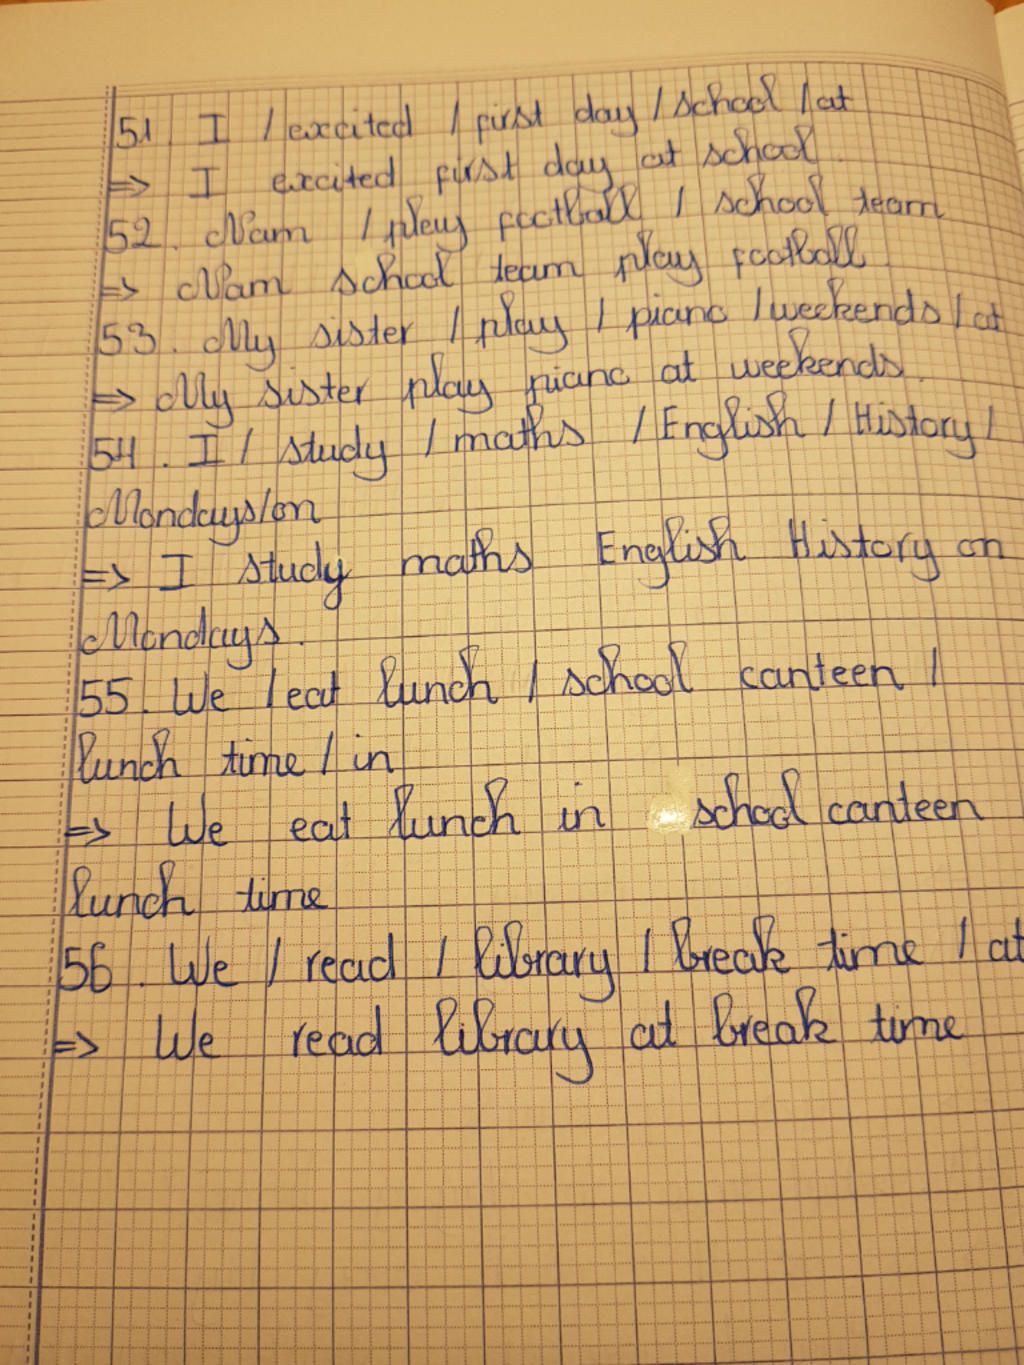 51. I / excited / first day / school / at
=> I excited first day at school.
52. Nam / play football / school team
=> Nam school team play football
53. My sister / play / piano / weekends / at
=> My sister play piano at weekends.
54. I / study / maths / English / History /
Mondays/on
=> I study maths English History on
Mondays.
55. We / eat lunch / school canteen /
lunch time / in
=> We eat lunch in school canteen
lunch time
56. We / read / library / break time / at
=> We read library at break time